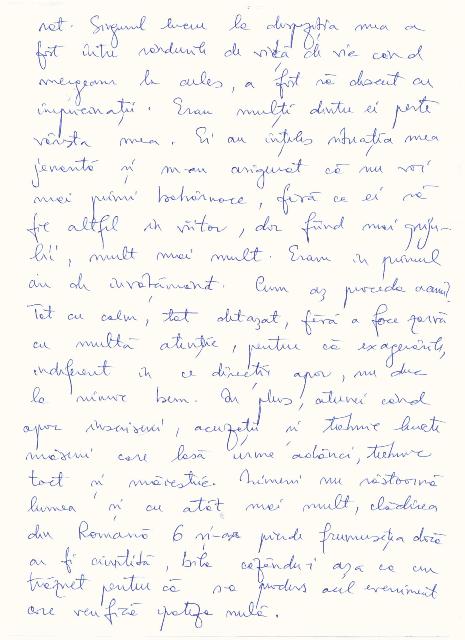 rat. Singurul lucru la dispoziția mea a
fost între rândurile de viță de vie când
mergeam la cules, a fost să discut cu
împricinații. Erau mulți dintre ei peste
vârsta mea. Ei au înțeles situația mea
jenantă și m-au asigurat că nu voi
mai primi bobârnace, fără ca ei să
fie altfel în viitor, dar fiind mai griju-
lii, mult mai mult. Eram în primul
an de învățământ. Cum aș proceda acum?
Tot cu calm, tot detașat, fără a face
cu multă atenție, pentru că exagerările,
indiferent în ce direcție apar, nu duc
la nimic bun. În plus, atunci când
apar inscripții, acuzații și trebuie luate
măsuri care lasă urme adânci, trebuie
tact și măiestrie. Nimeni nu răstoarnă
lumea și cu atât mai mult, clădirea
din Romană 6 și-ar pierde frumusețea dacă
ar fi ciuntită, bile căzându-i așa ca un
trăznet pentru că s-a produs acel eveniment
care verifică ipoteza nulă.